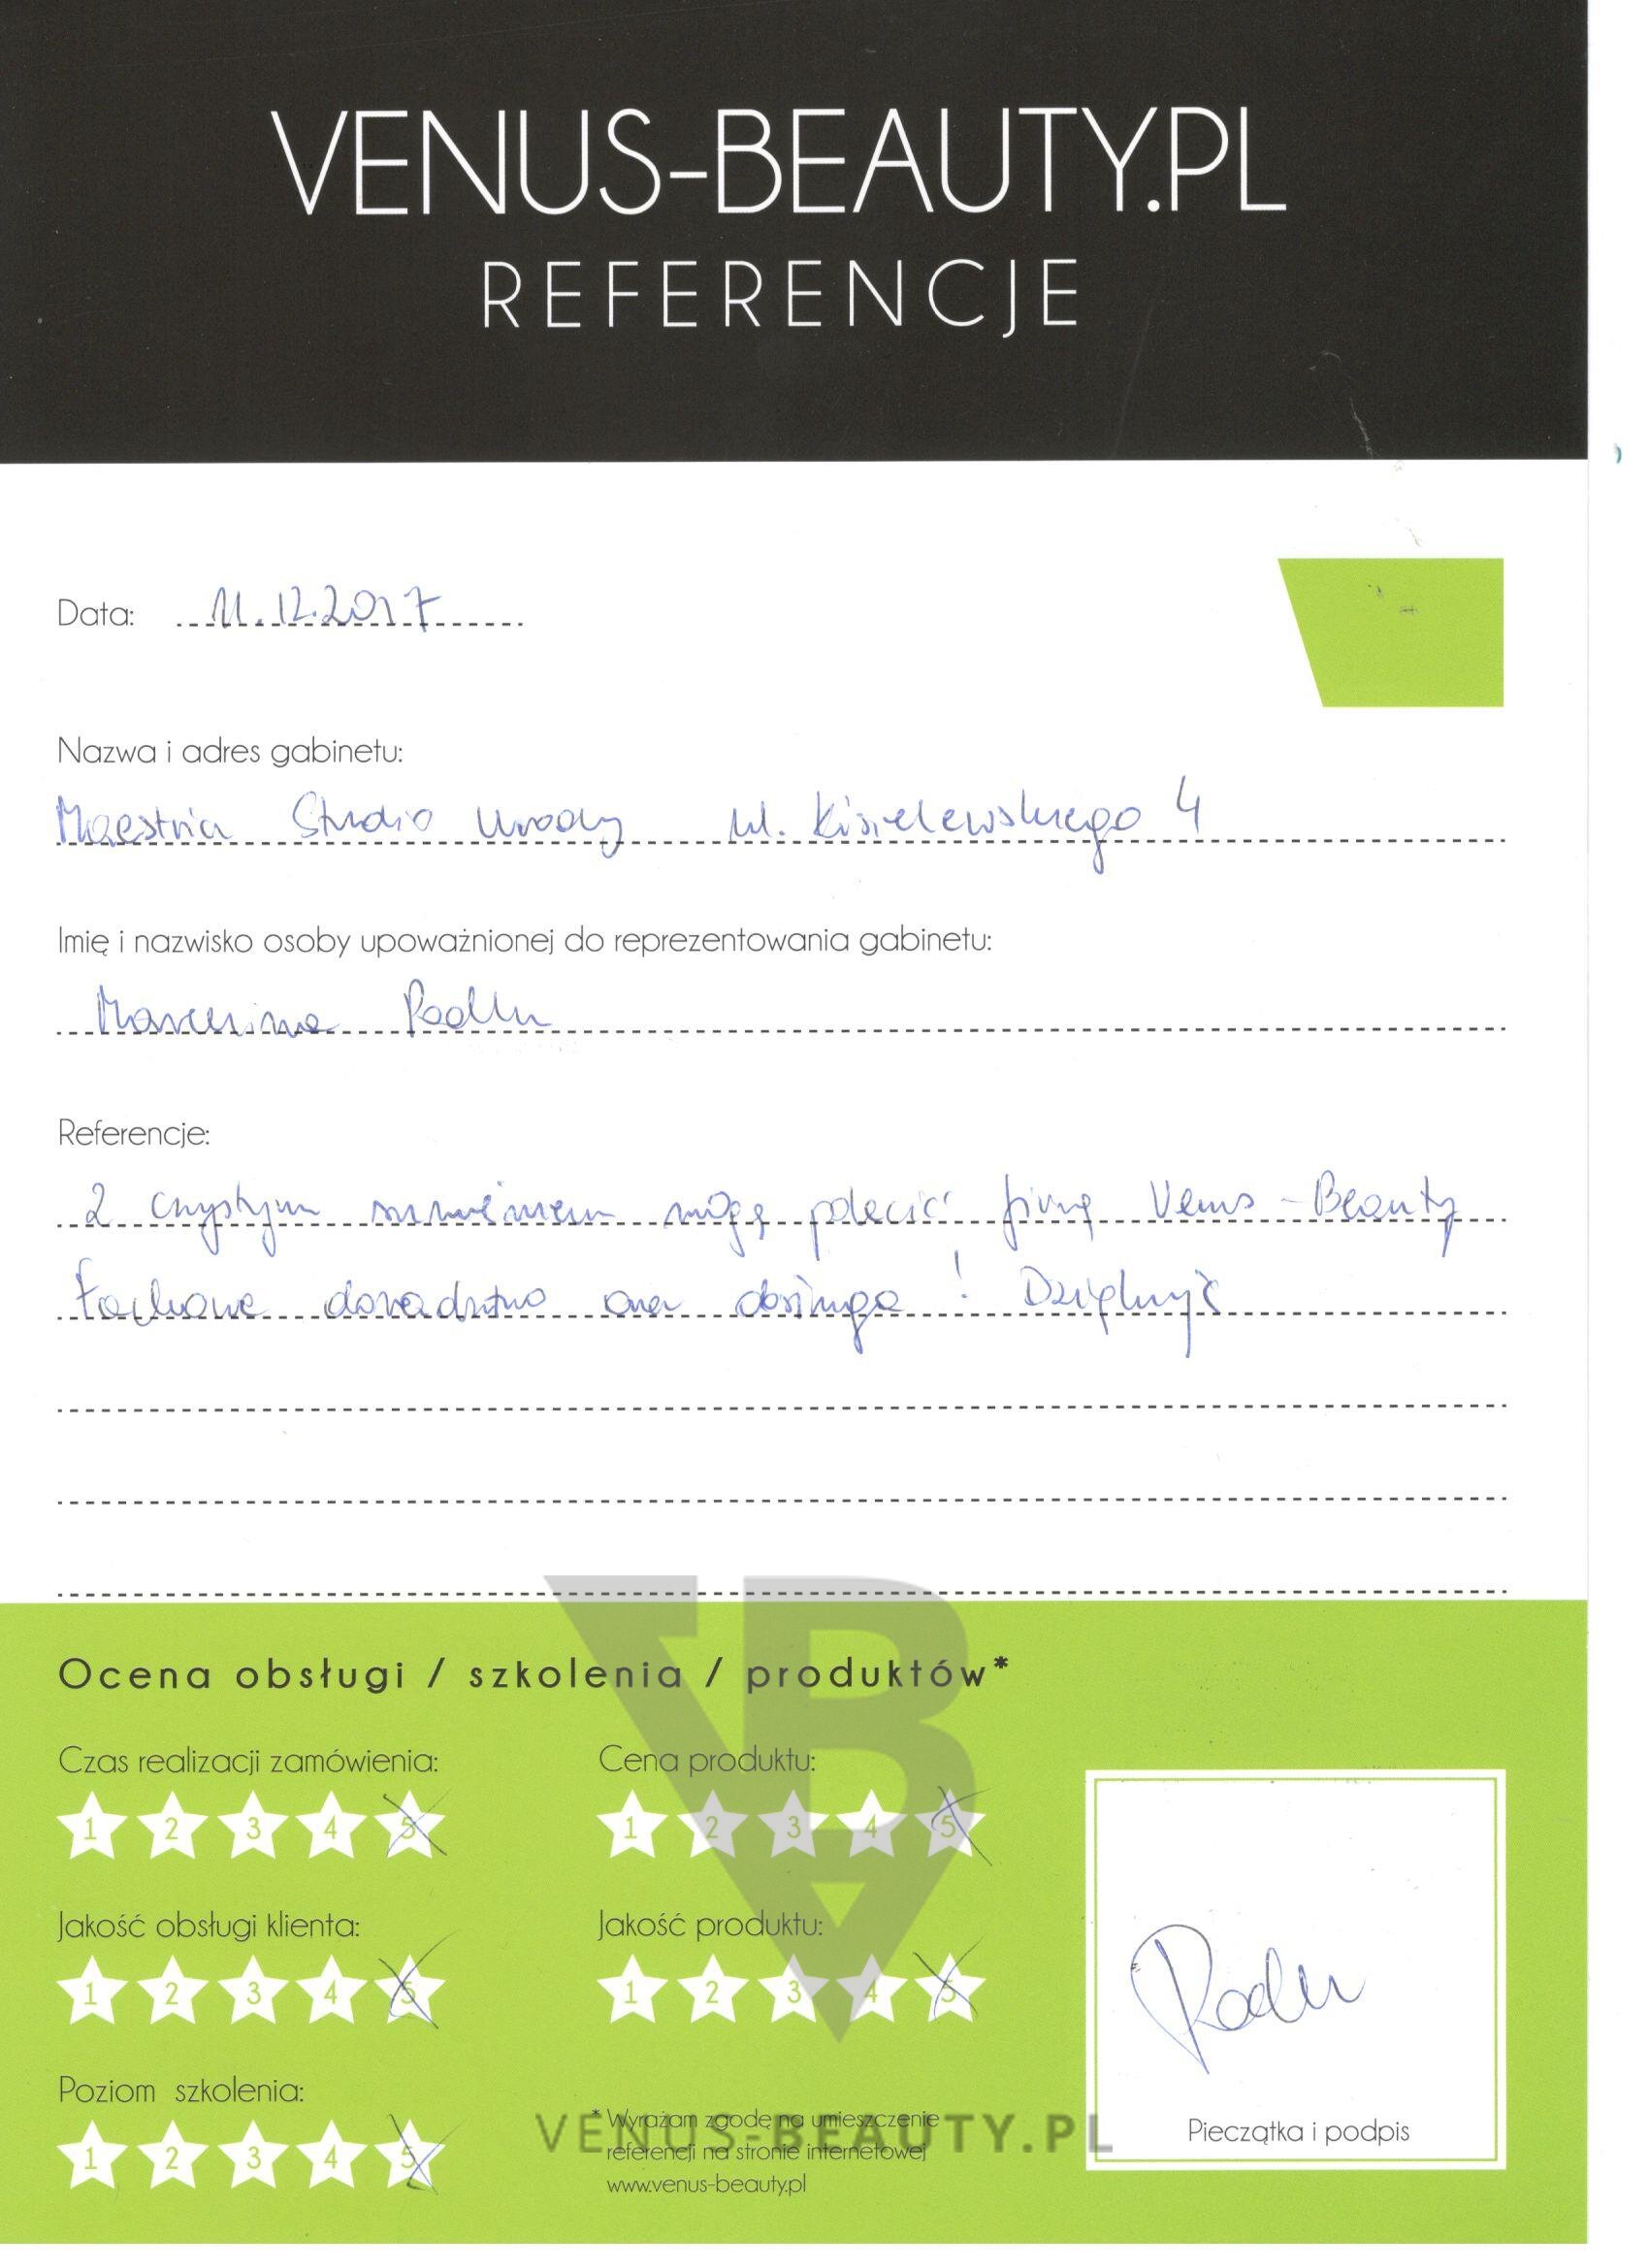 VENUS-BEAUTY.PL
REFERENCJE
Data: 11.12.2017
Nazwa i adres gabinetu:
Maestria Studio Urody ul. Kisielewskiego 4
Imię i nazwisko osoby upoważnionej do reprezentowania gabinetu:
Referencje:
Z czystym sumieniem mogę polecić firmę Venus-Beauty
Fachowe doradztwo oraz obsługa! Dziękuję
Ocena obsługi / szkolenia / produktów*
Czas realizacji zamówienia: Cena produktu:
1 2 3 4 5 1 2 3 4 5
Jakość obsługi klienta: Jakość produktu:
1 2 3 4 5 1 2 3 4 5
Poziom szkolenia:
1 2 3 4 5
* Wyrażam zgodę na umieszczenie
referencji na stronie internetowej
www.venus-beauty.pl
VENUS-BEAUTY.PL
Pieczątka i podpis